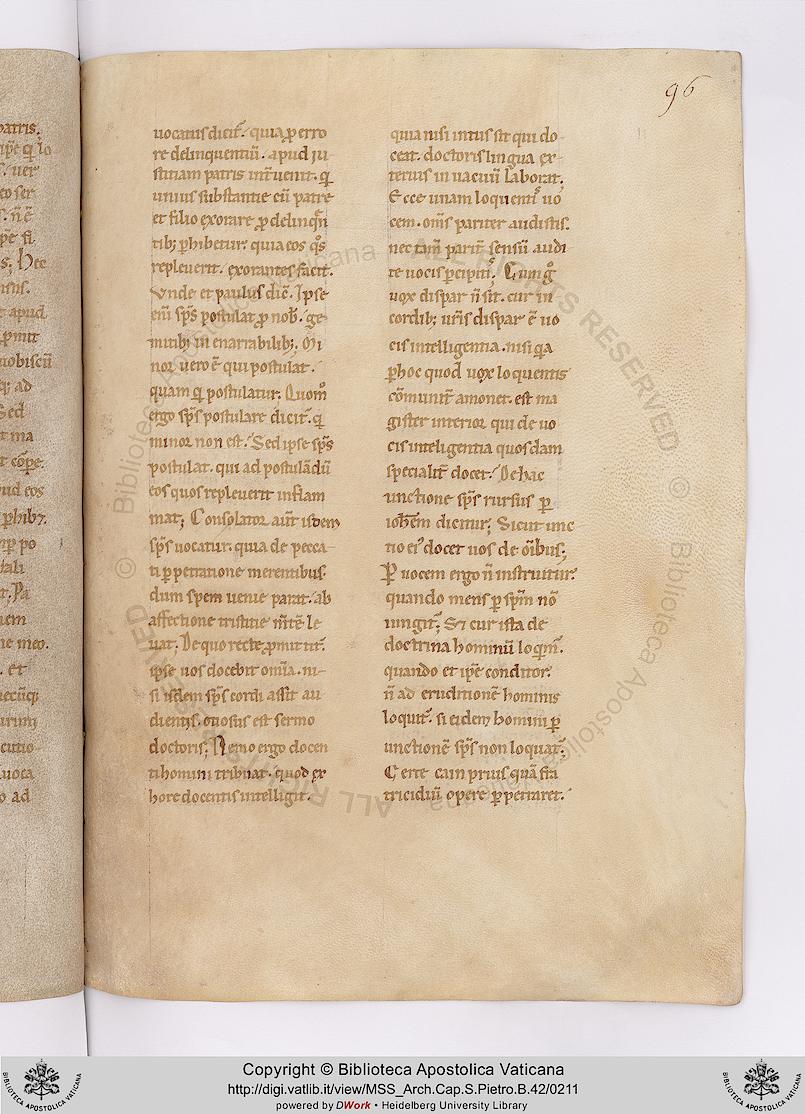 96
uocatus dicit̄. quia ꝓ erro
re delinquentiū. apud iu
stitiam patris int̄uenit. q̄
unius substantie cū patre
et filio exorare ꝓ delinqn̄
tib; ꝑhibetur. quia eos qͦs
repleuerit. exorantes facit.
Vnde et paulus dic̄. Ipse
eni sp̄s postulat ꝓ nob̄. ge
mitib; in enarrabilib;. Mi
nor uero ē qui postulat.
quam q̄ postulatur. Quom̊
ergo sp̄s postulare dicit̄. q̄
minor non est. Sed ipse sp̄s
postulat. qui ad postulādū
eos quos repleuerit inflam
mat; Consolator aūt isdem
sp̄s uocatur. quia de pecca
ti ꝑpetratione merentibus.
dum spem uenie parat. ab
affectione tristitie m̄tē le
uat. De quo recte ꝓmittit̄.
ipse uos docebit om̄ia. ni
si isdem sp̄s cordi assit au
dientis. otiosus est sermo
doctoris; Nemo ergo docen
ti homini tribuat. quod ex
hore docentis intelligit.
quia nisi intus sit qui do
ceat. doctoris lingua ex
terius in uacuū laborat.
Ecce unam loquentis uo
cem. om̄s pariter audistis.
nec tam̄ parē sensū audi
te uocis ꝑcipitis. Cum gͦ
uox dispar n̄ sit. cur in
cordib; ur̄is dispar ē uo
cis intelligentia. nisi qa
ꝑ hoc quod uox loquentis
cōmunit̄ amonet. est ma
gister interior qui de uo
cis inteligentia quosdam
specialit̄ docet. De hac
unctione sp̄s rursus ꝑ
ioh̄em dicitur; Sicut unc
tio eiꝰ docet uos de om̄ibus;
Ꝑ uocem ergo n̄ instruitur.
quando mens ꝑ sp̄m nō
ungit̄; Si cur ista de
doctrina hominū loqm̄.
quando et ip̄e conditor.
n̄ ad eruditionē hominis
loquit̄. si eidem homini ꝑ
unctionē sp̄s non loquat̄;
Certe cain prius quā fra
tricidiū opere ꝑpetraret.
Copyright © Biblioteca Apostolica Vaticana
http://digi.vatlib.it/view/MSS_Arch.Cap.S.Pietro.B.42/0211
powered by DWork • Heidelberg University Library